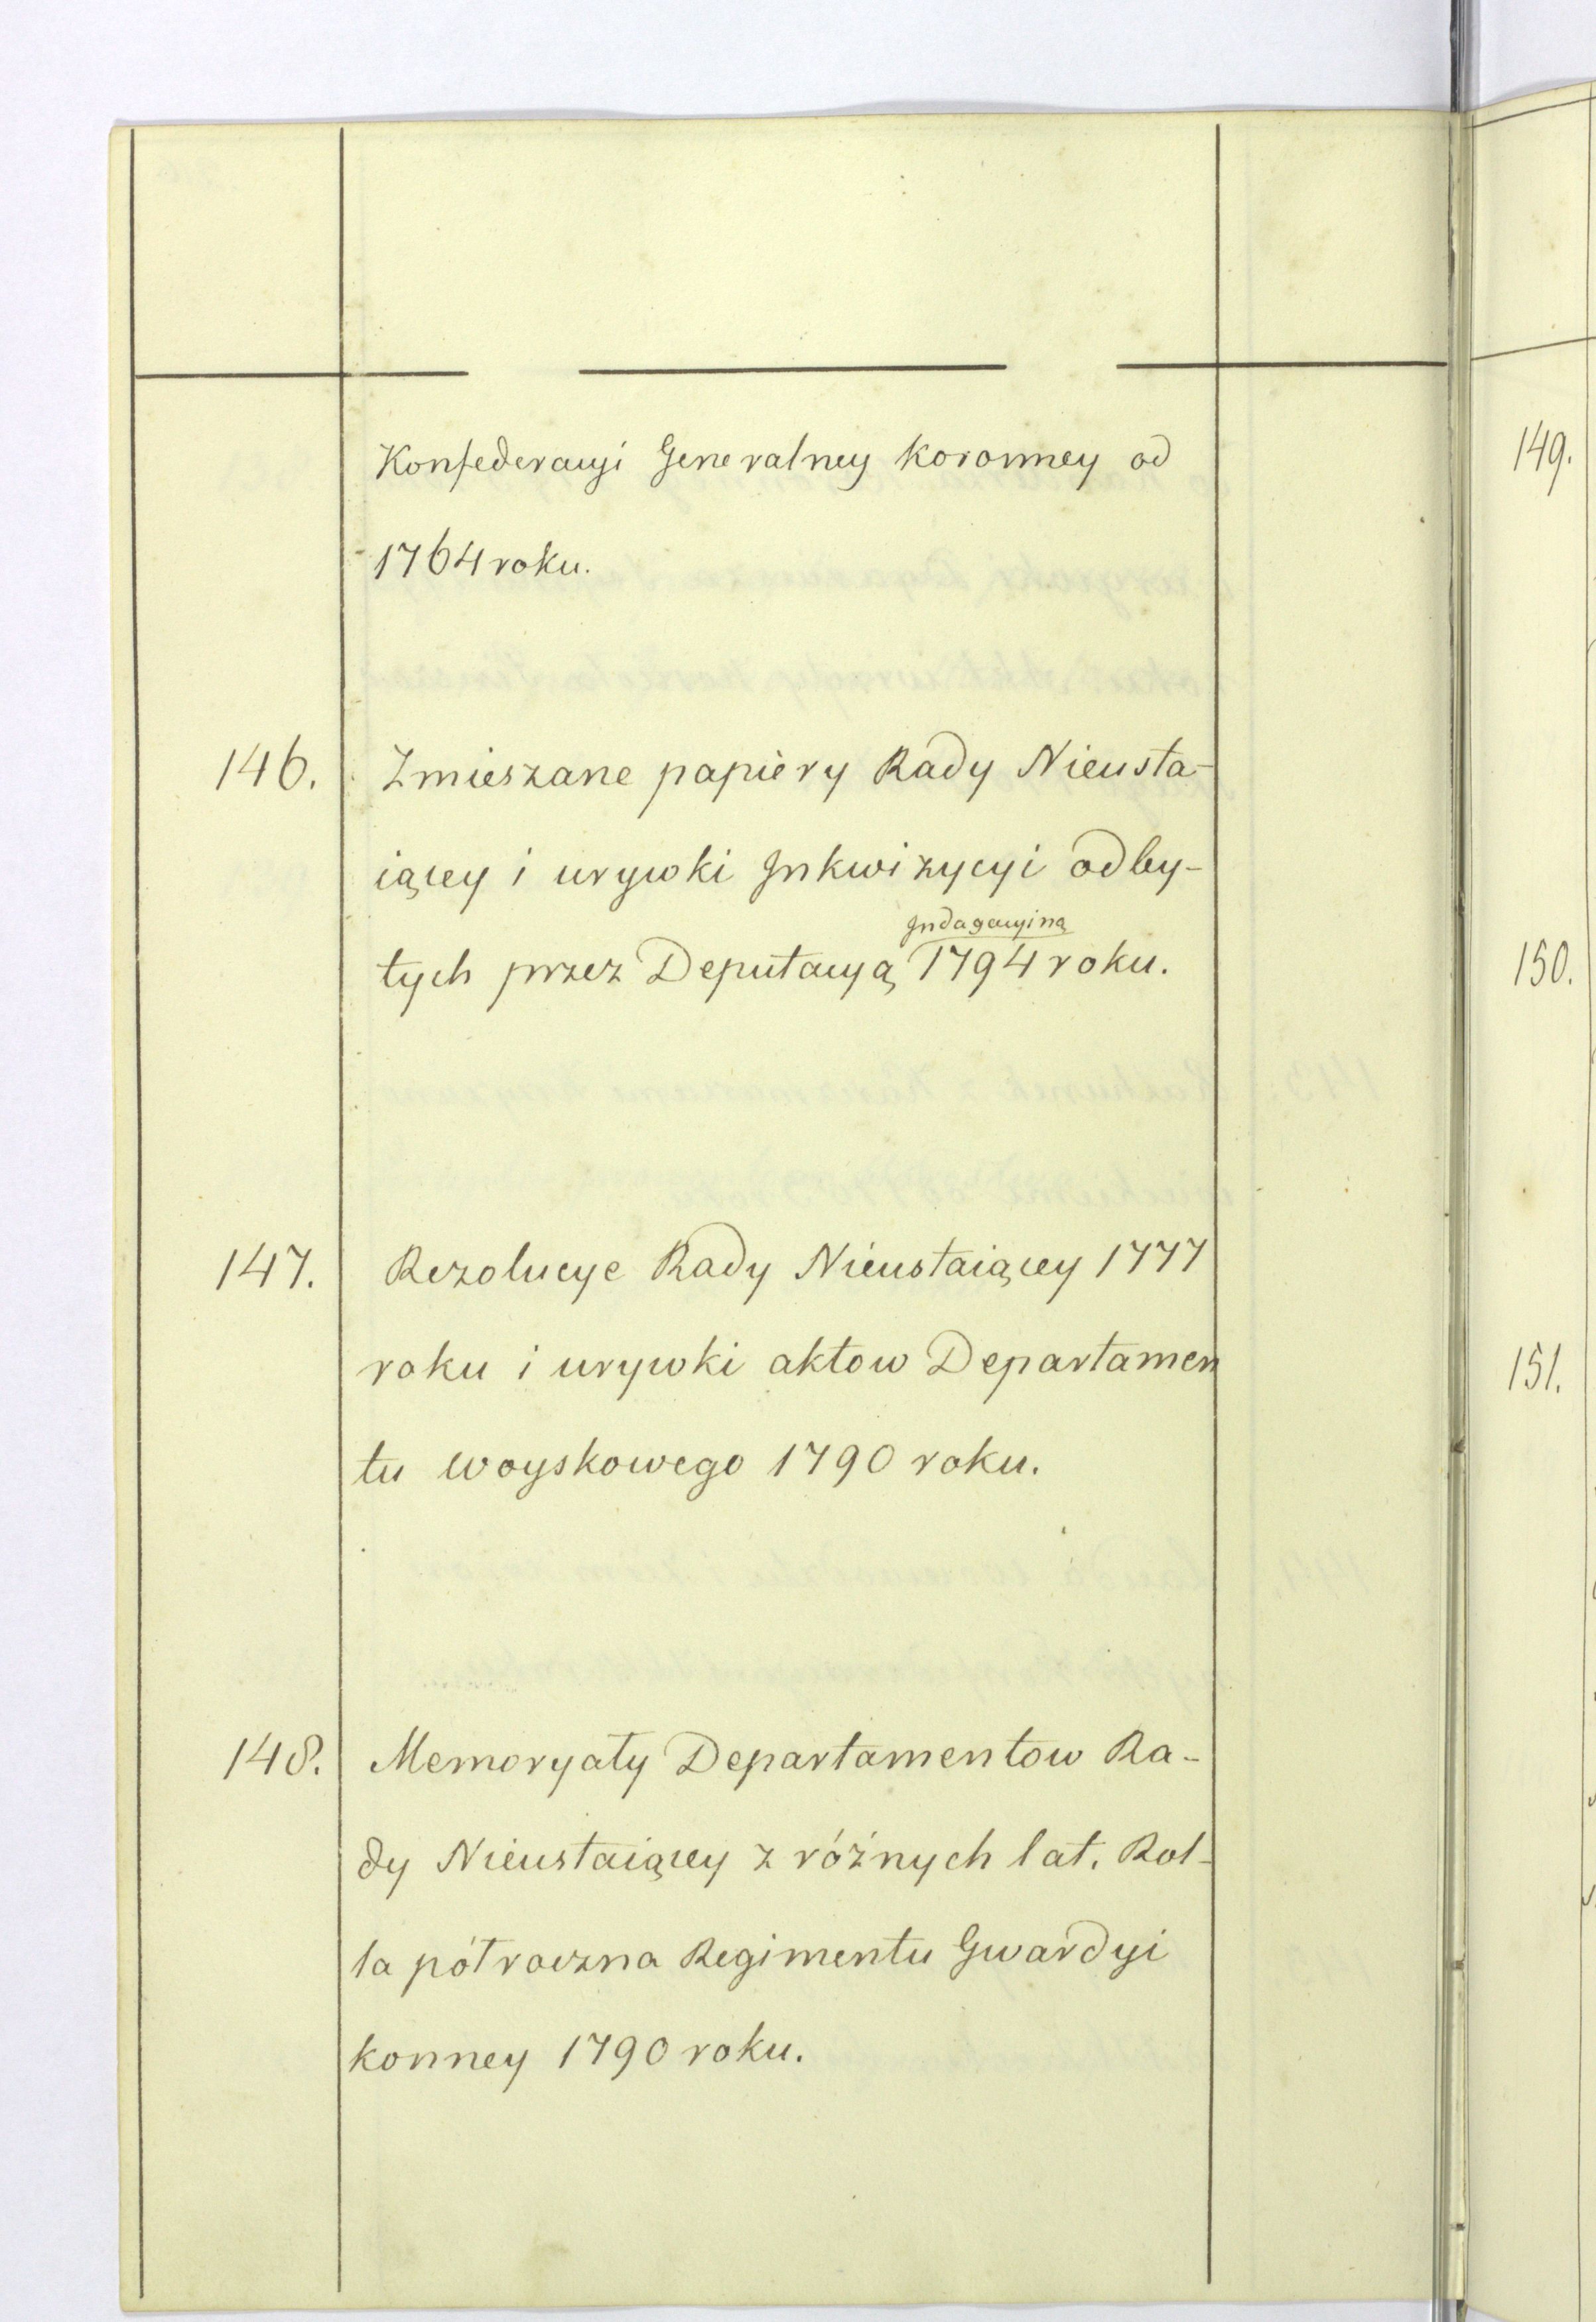 Konfederacyi Generalney Koronney od
1764 roku.
146. Zmieszane papiery Rady Nieusta-
iącey i urywki Inkwizycyi odby-
Indagacyiną
tych przez Deputacyą 1794 roku.
147. Rezolucye Rady Nieustaiącey 1777
roku i urywki aktow Departamen
tu Woyskowego 1790 roku.
148. Memoryały Departamentow Ra-
dy Nieustaiącey z różnych lat. Rol-
la półroczna Regimentu Gwardyi
konney 1790 roku.
149.
150.
151.